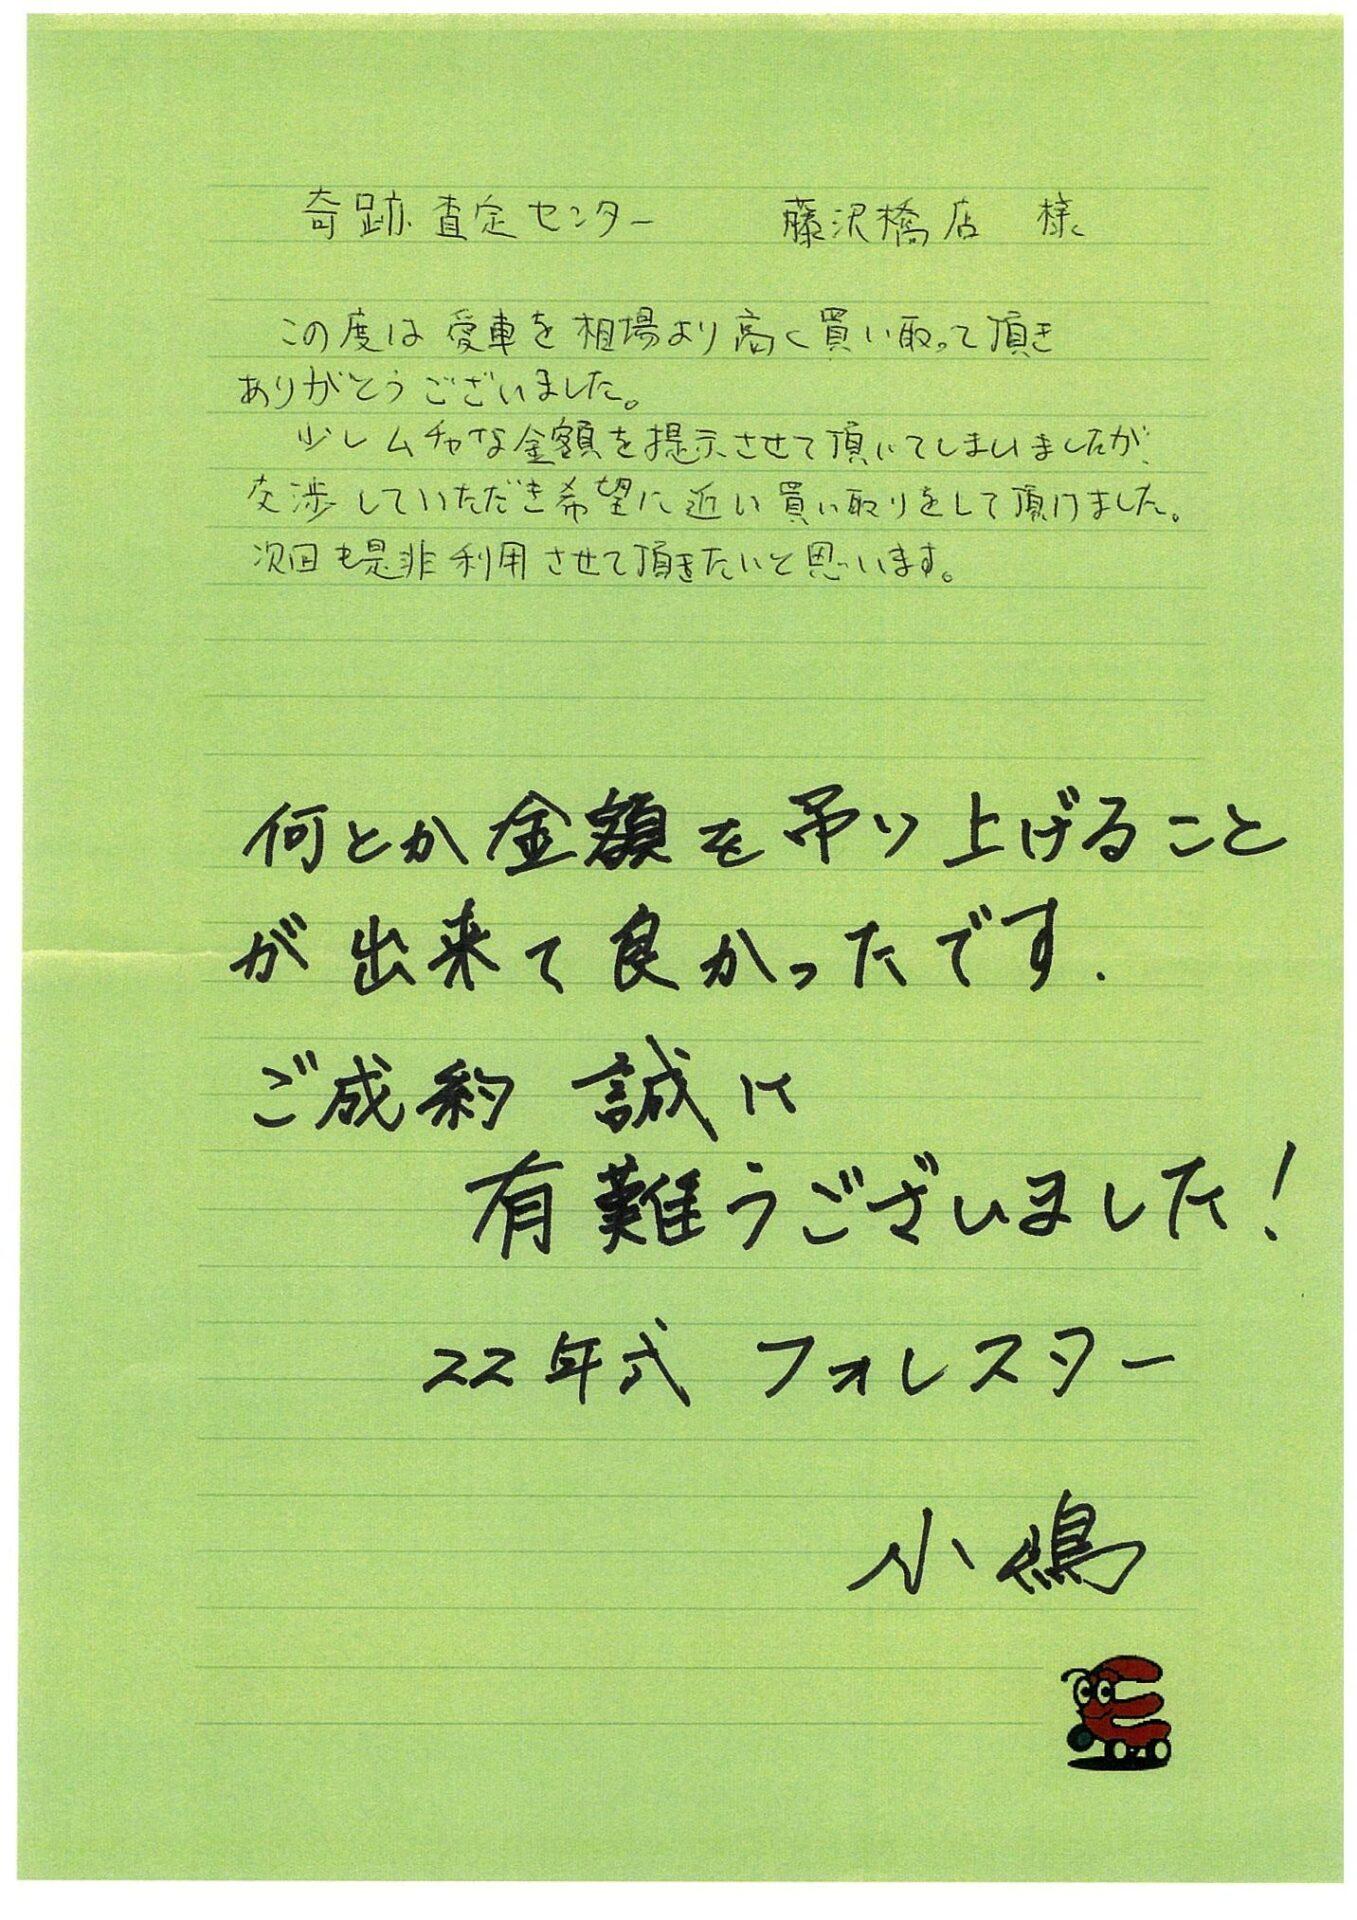 奇跡査定センター　藤沢橋店　様
この度は愛車を相場より高く買い取って頂き
ありがとうございました。
少しムチャな金額を提示させて頂いてしまいましたが、
交渉していただき希望に近い買い取りをして頂けました。
次回も是非利用させて頂きたいと思います。
何とか金額を吊り上げること
が出来て良かったです.
ご成約 誠に
有難うございました!
22年式 フォレスター
小嶋